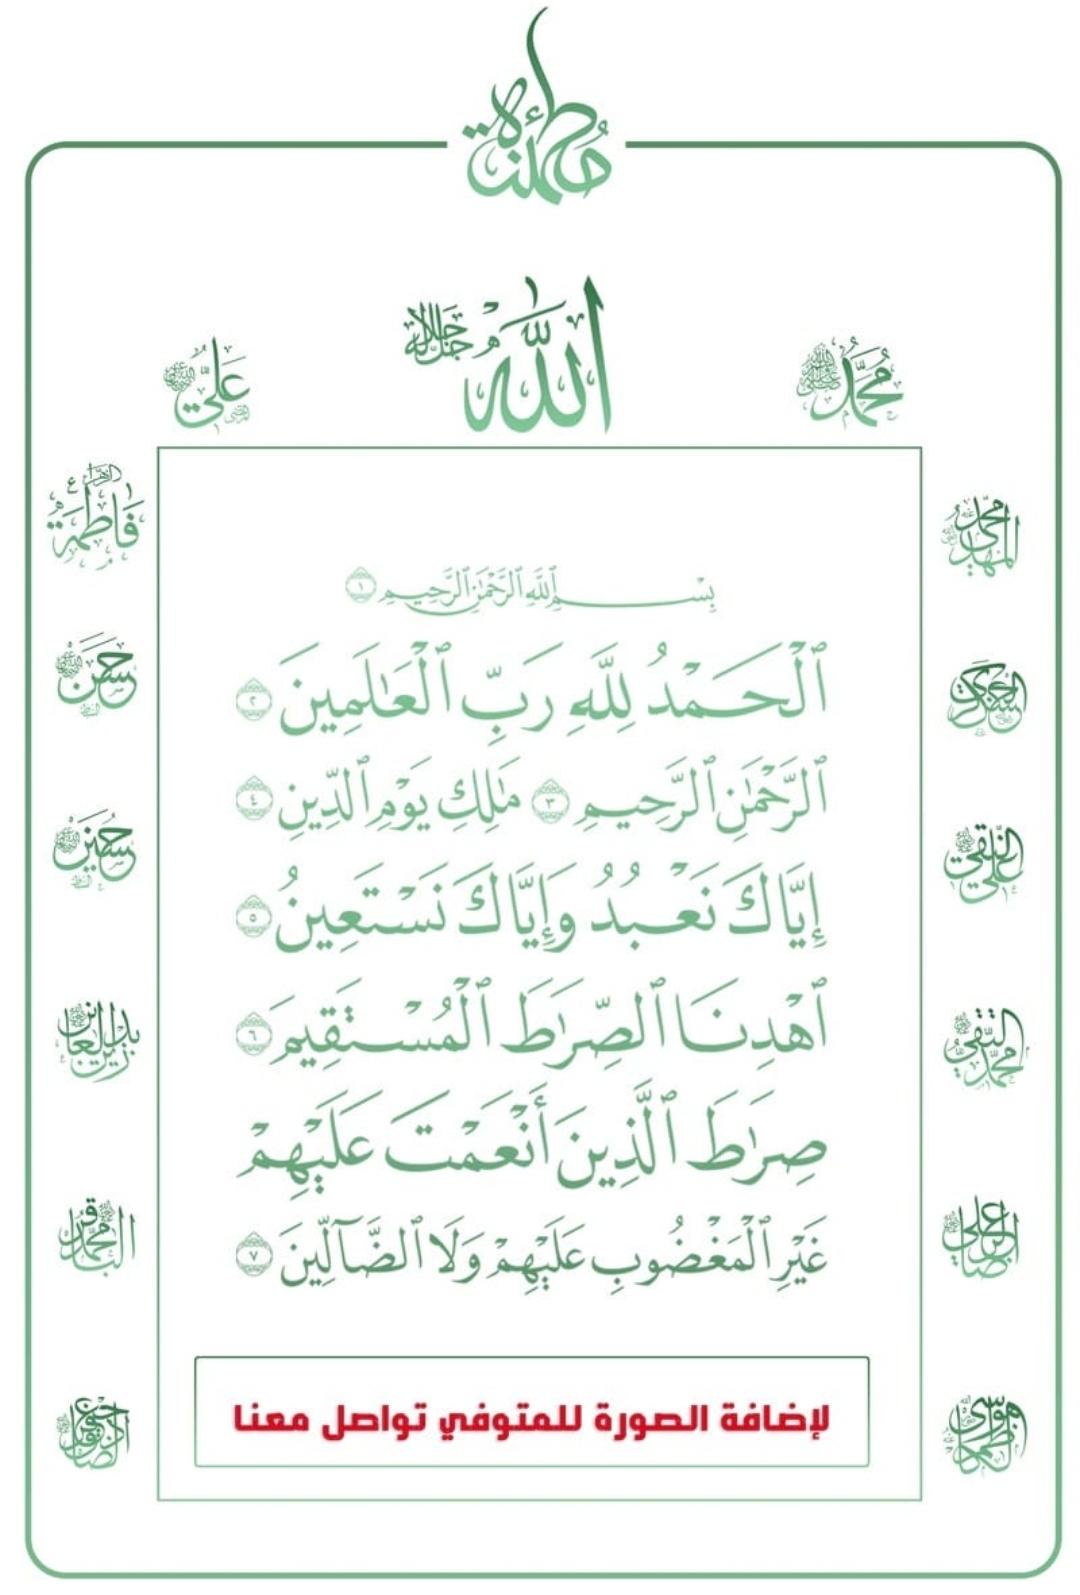 مُطمئنة
الله جل جلاله
محمد
علي
فاطمة الزهراء ع
حسن
حسين
زين العابدين
محمد الباقر
جعفر الصادق
موسى الكاظم
علي الرضا
محمد التقي
علي النقي
العسكري
محمد المهدي
بِسْمِ ٱللَّهِ ٱلرَّحْمَٰنِ ٱلرَّحِيمِ ١
ٱلْحَمْدُ لِلَّهِ رَبِّ ٱلْعَٰلَمِينَ ٢
ٱلرَّحْمَٰنِ ٱلرَّحِيمِ ٣ مَٰلِكِ يَوْمِ ٱلدِّينِ ٤
إِيَّاكَ نَعْبُدُ وَإِيَّاكَ نَسْتَعِينُ ٥
ٱهْدِنَا ٱلصِّرَٰطَ ٱلْمُسْتَقِيمَ ٦
صِرَٰطَ ٱلَّذِينَ أَنْعَمْتَ عَلَيْهِمْ
غَيْرِ ٱلْمَغْضُوبِ عَلَيْهِمْ وَلَا ٱلضَّآلِّينَ ٧
لإضافة الصورة للمتوفي تواصل معنا